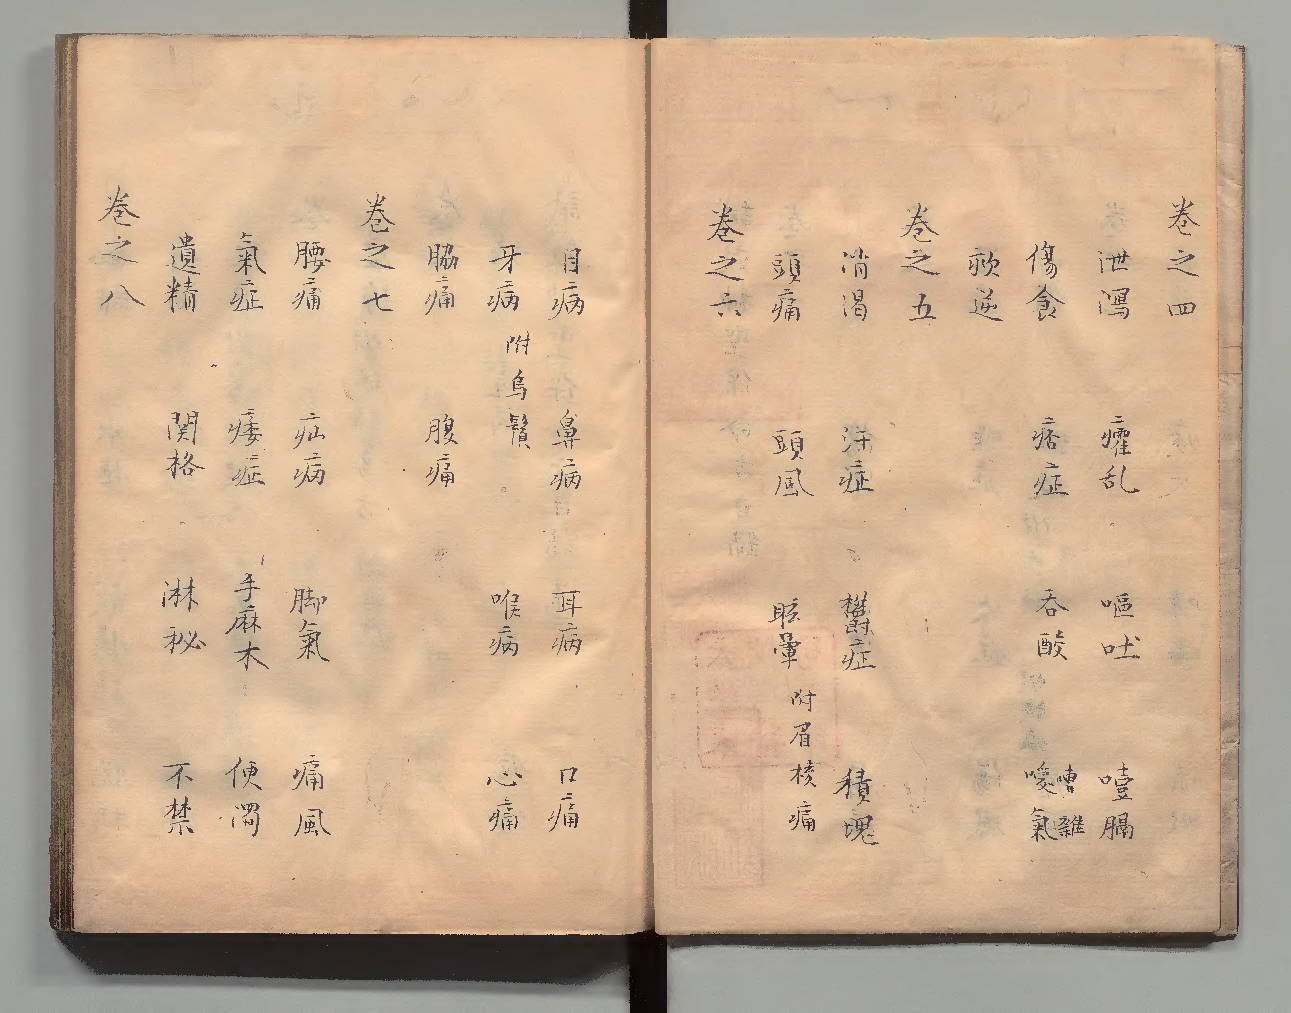 巻之四
泄瀉 癨乱 嘔吐 噎膈
傷食 痞症 呑酸 噯氣 嘈雜
欬逆
巻之五
消渇 汗症 欝症 積塊
頭痛 頭風 眩暈 附眉棱痛
巻之六
目病 鼻病 耳病 口痛
牙病 附烏鬚 喉病 心痛
脇痛 腹痛
巻之七
腰痛 疝病 脚氣 痛風
氣症 痿症 手麻木 便濁
遺精 関格 淋秘 不禁
巻之八